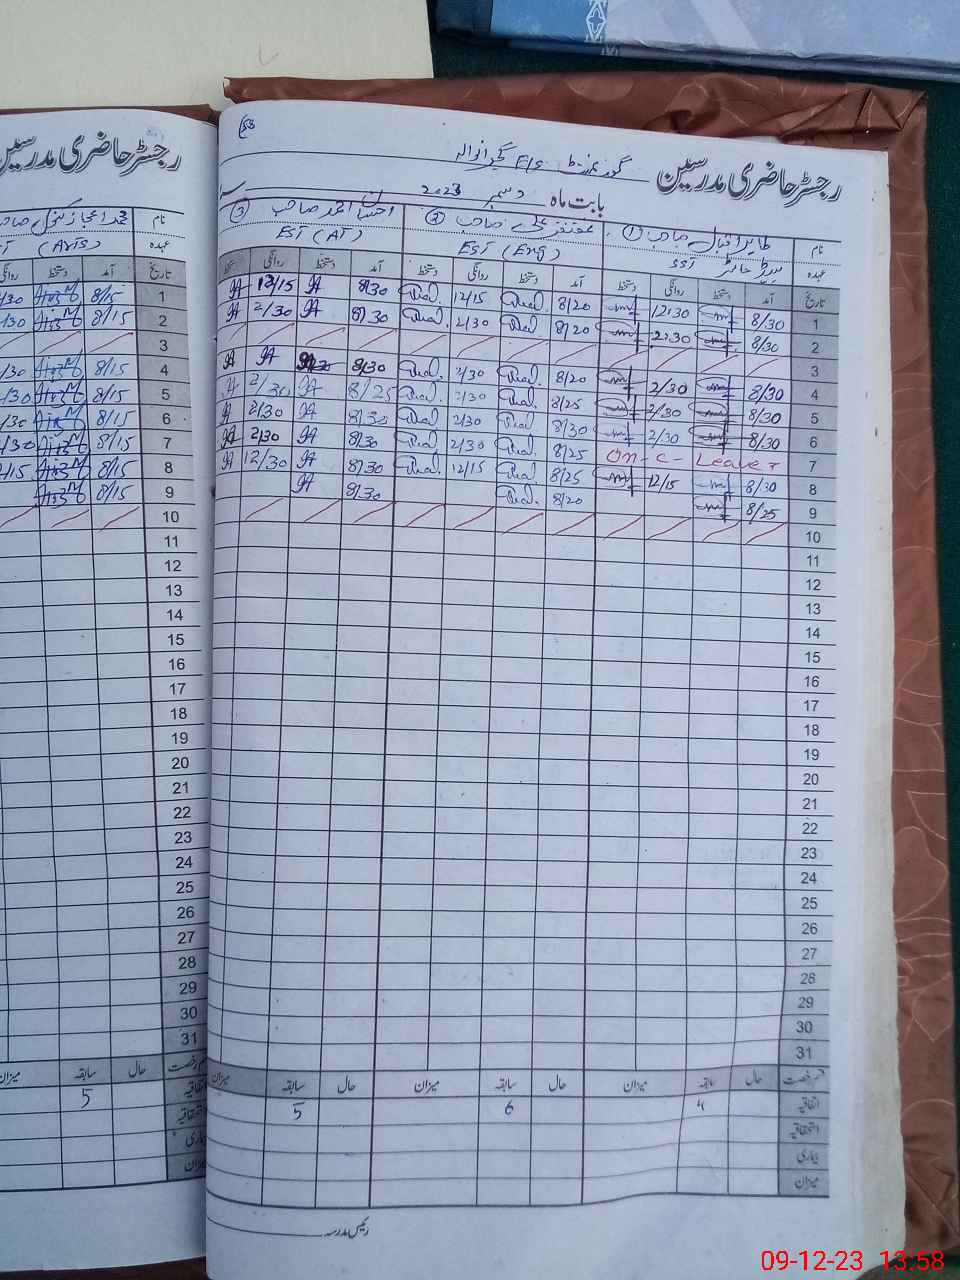 رجسٹر حاضری مدرسین
گورنمنٹ E/S
بابت ماہ دسمبر 2023
نام ① صاحب ② صاحب ③ احمد صاحب
عہدہ SST EST (Eng) EST (AT)
تاریخ آمد دستخط روانگی دستخط آمد دستخط روانگی دستخط آمد دستخط روانگی
1 8/30 12:30 8/20 12/15 8/30 12/15
2 8/30 2:30 8/20 2/30 8/30 2/30
3
4 8/30 2/30 8/20 2/30 8/30
5 8/30 2/30 8/25 2/30 8/25 2/30
6 8/30 2/30 8/30 2/30 8/30 2/30
7 On - C - Leave 8/25 2/30 8/30 2/30
8 8/30 12/15 8/25 12/15 8/30 12/30
9 8/25 8/20 8/30
10
11
12
13
14
15
16
17
18
19
20
21
22
23
24
25
26
27
28
29
30
31
قسم رخصت حال سابقہ میزان حال سابقہ میزان حال سابقہ میزان
اتفاقیہ 4 6 5
استحقاقیہ
بیماری
میزان
رئیس مدرسہ
رجسٹر حاضری مدرسین
نام صاحب
عہدہ (Arts)
تاریخ آمد دستخط روانگی
1 8/15
2 8/15
3
4 8/15
5 8/15
6 8/15
7 8/15
8 8/15
9 8/15
10
11
12
13
14
15
16
17
18
19
20
21
22
23
24
25
26
27
28
29
30
31
قسم رخصت حال سابقہ میزان
اتفاقیہ 5
استحقاقیہ
بیماری
میزان
09-12-23 13:58